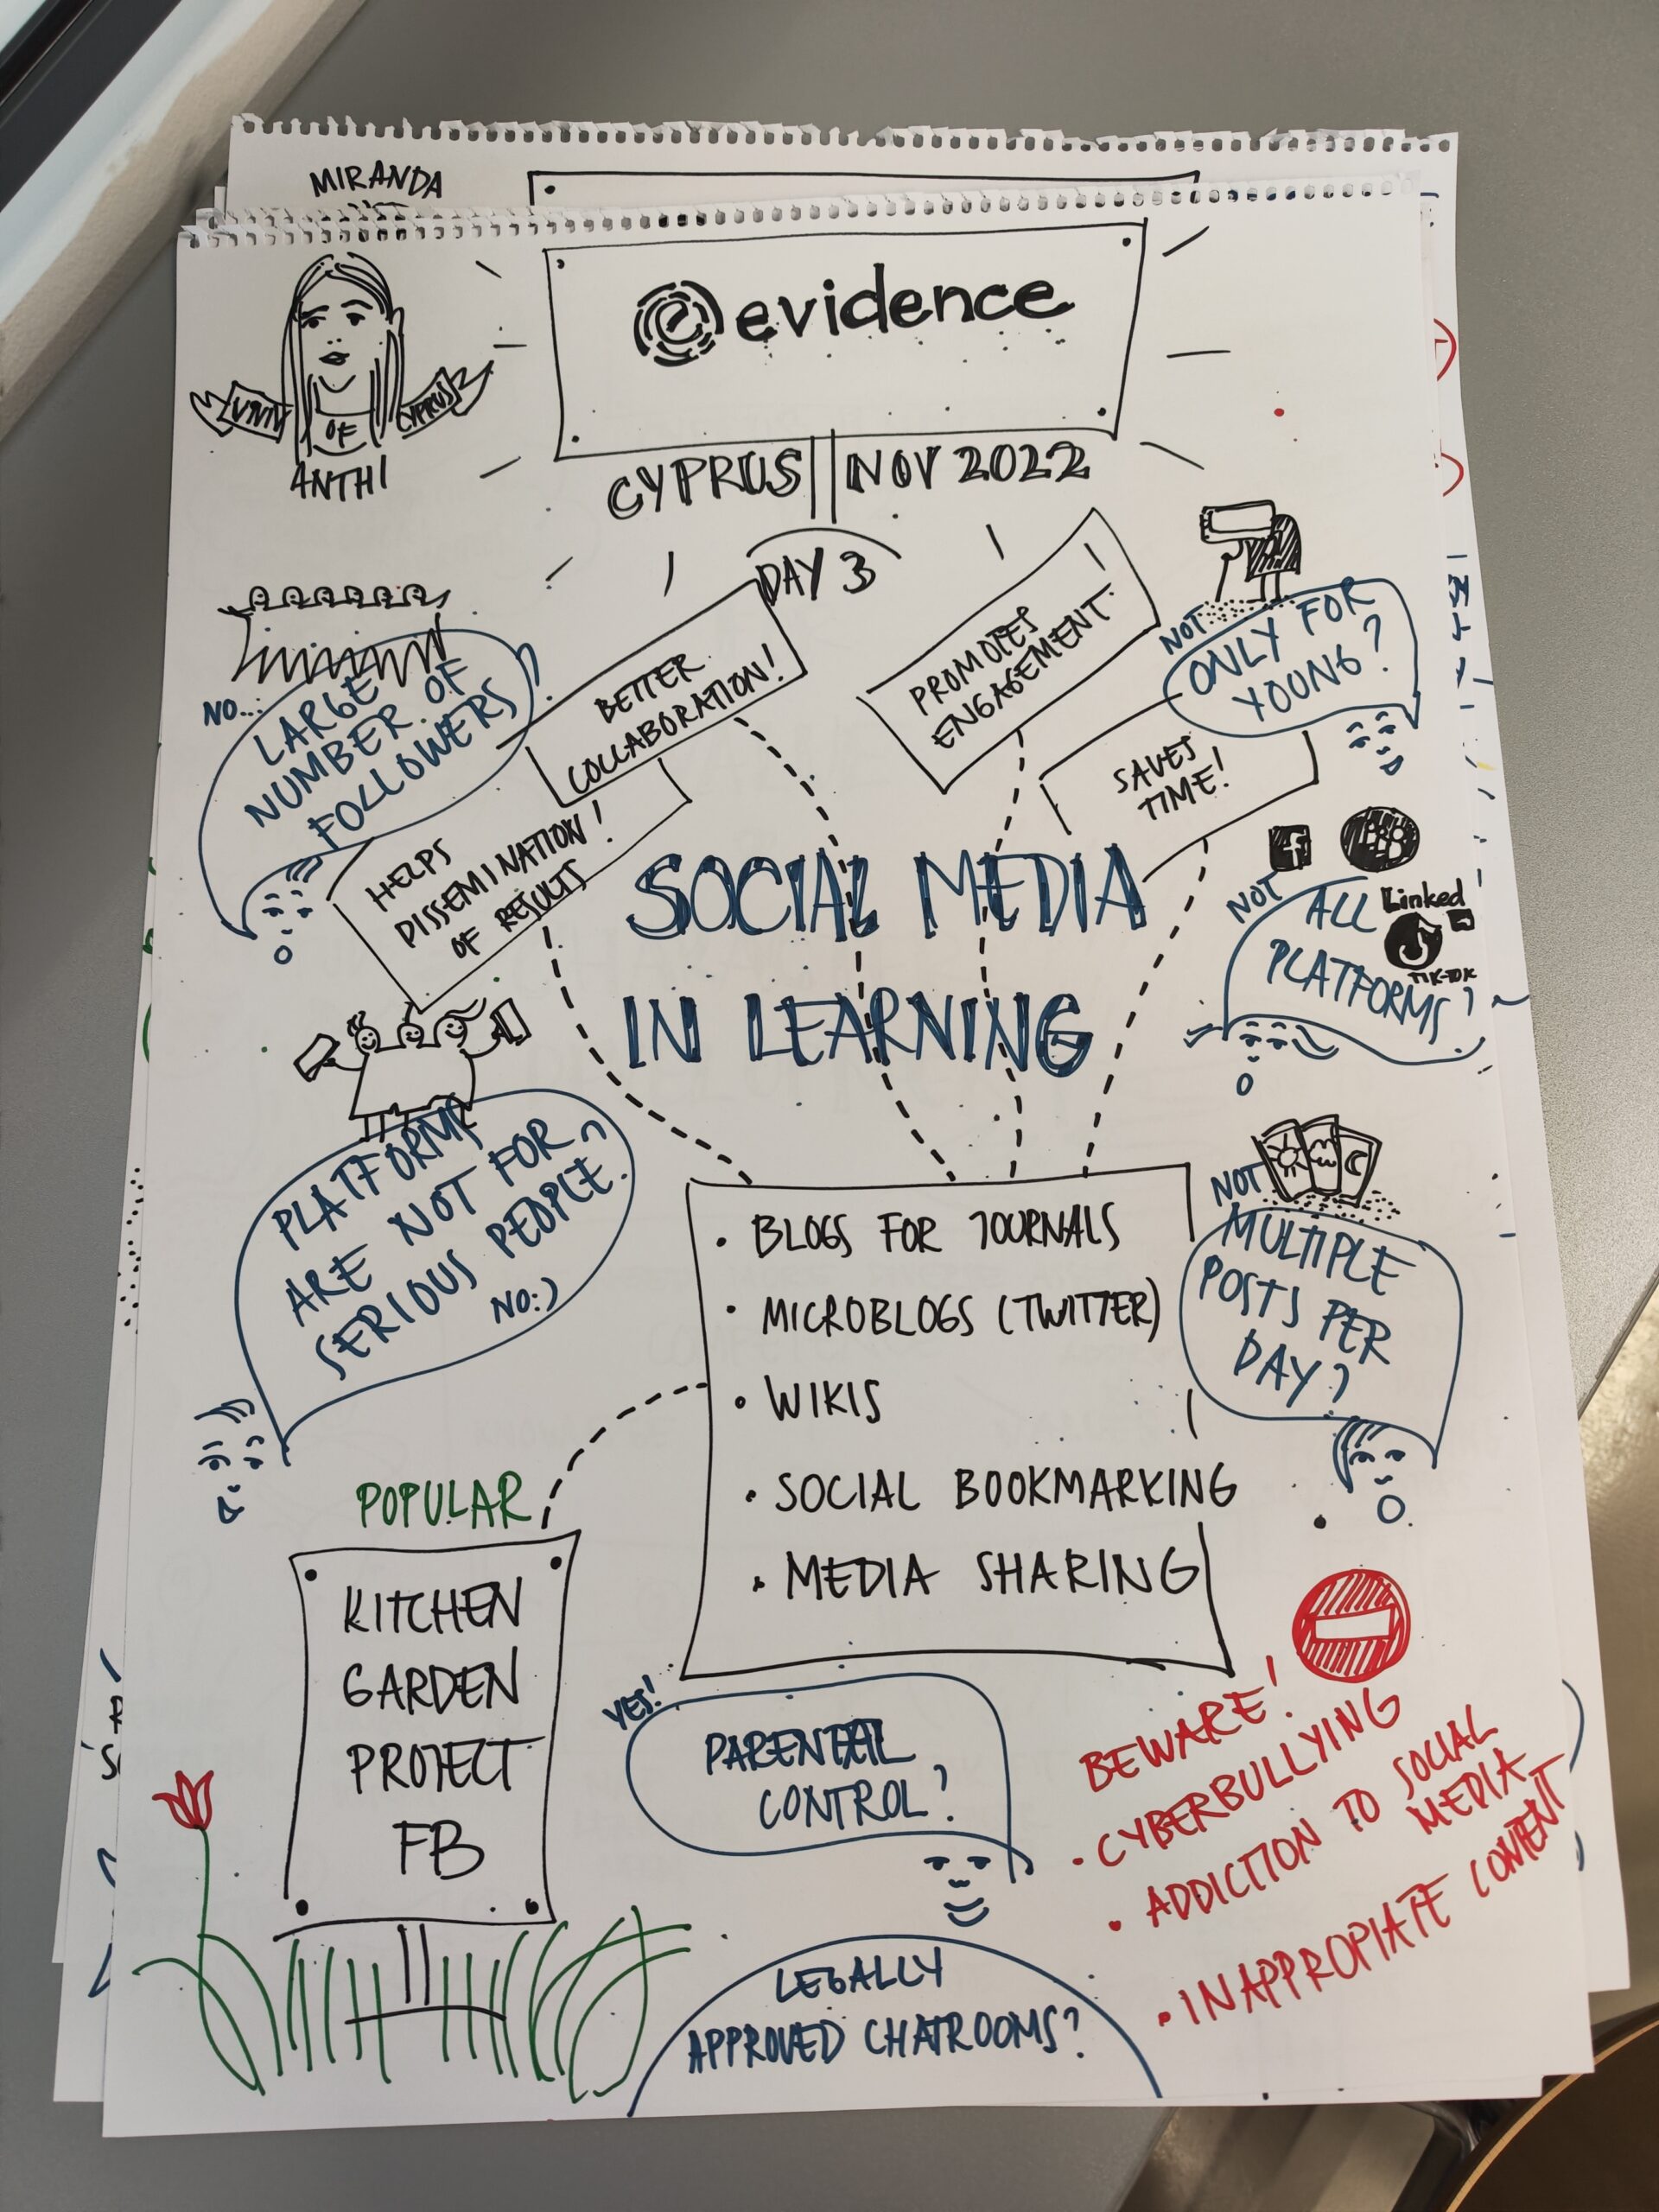 MIRANDA
evidence
UNIV
OF
CYPRUS
ANTHI
CYPRUS NOV 2022
DAY 3
NO...
LARGE
NUMBER OF
FOLLOWERS?
BETTER
COLLABORATION!
PROMOTES
ENGAGEMENT!
NOT
ONLY FOR
YOUNG?
SAVES
TIME!
HELPS
DISSEMINATION!
OF RESULTS
SOCIAL MEDIA
IN LEARNING
f
NOT
ALL
PLATFORMS?
Linked
TIK-TOK
PLATFORMS
ARE NOT FOR
SERIOUS PEOPLE?
NO:)
• BLOGS FOR JOURNALS
• MICROBLOGS (TWITTER)
• WIKIS
• SOCIAL BOOKMARKING
• MEDIA SHARING
NOT
MULTIPLE
POSTS PER
DAY?
POPULAR
KITCHEN
GARDEN
PROJECT
FB
YES!
PARENTAL
CONTROL?
BEWARE!
• CYBERBULLYING
• ADDICTION TO SOCIAL
MEDIA
• INAPPROPIATE CONTENT
LEGALLY
APPROVED CHATROOMS?